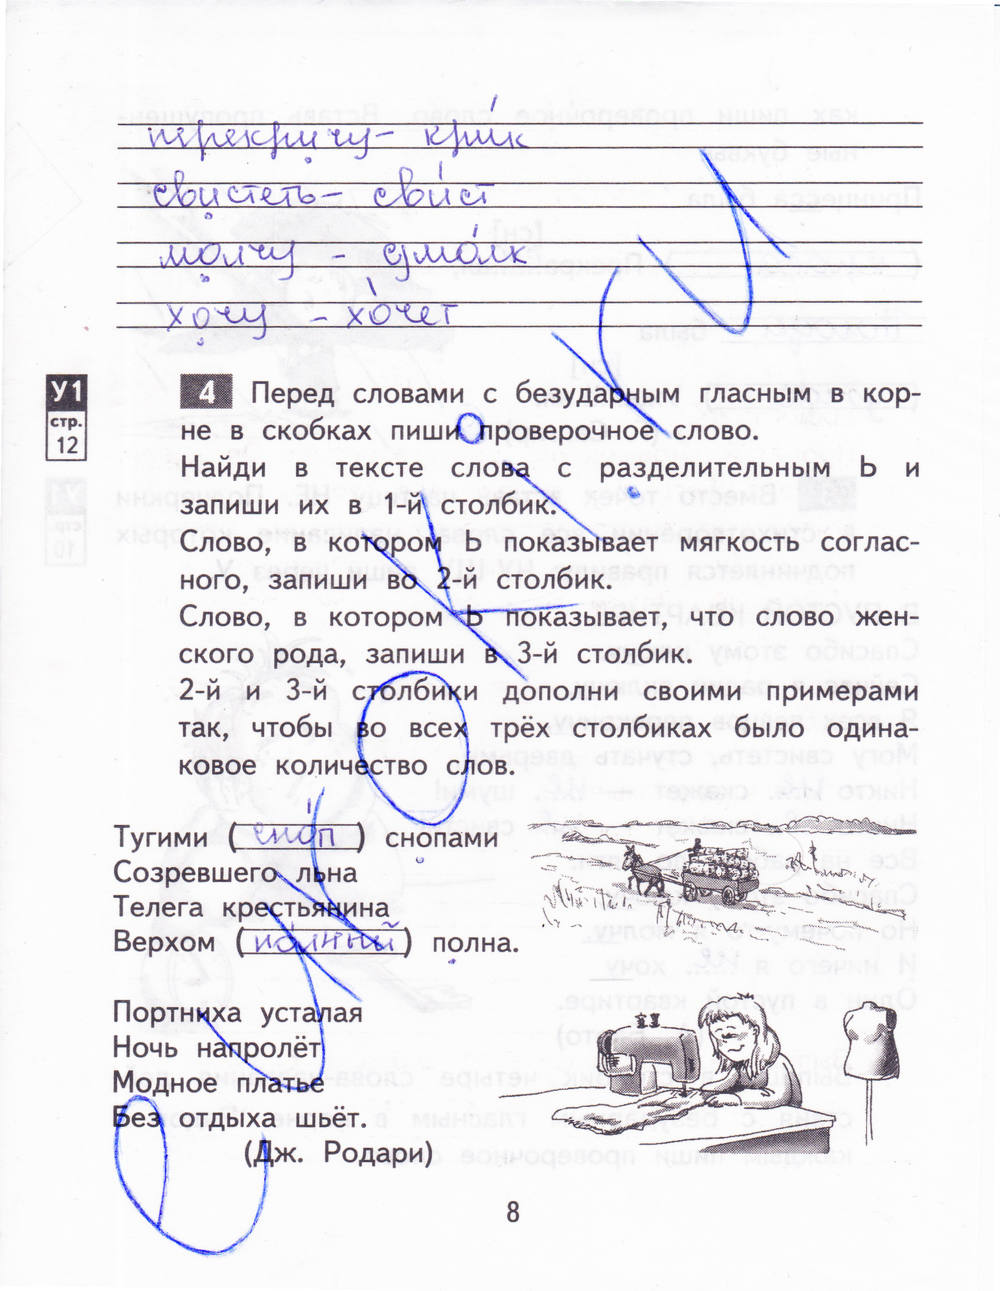 перекричу – крик
свистеть – свист
молчу – умолк
хочу – хочет
У1
стр.
12
4 Перед словами с безударным гласным в кор-
не в скобках пиши проверочное слово.
Найди в тексте слова с разделительным Ь и
запиши их в 1-й столбик.
Слово, в котором Ь показывает мягкость соглас-
ного, запиши во 2-й столбик.
Слово, в котором Ь показывает, что слово жен-
ского рода, запиши в 3-й столбик.
2-й и 3-й столбики дополни своими примерами
так, чтобы во всех трёх столбиках было одина-
ковое количество слов.
Тугими (сноп) снопами
Созревшего льна
Телега крестьянина
Верхом (полный) полна.
Портниха усталая
Ночь напролёт
Модное платье
Без отдыха шьёт.
(Дж. Родари)
8